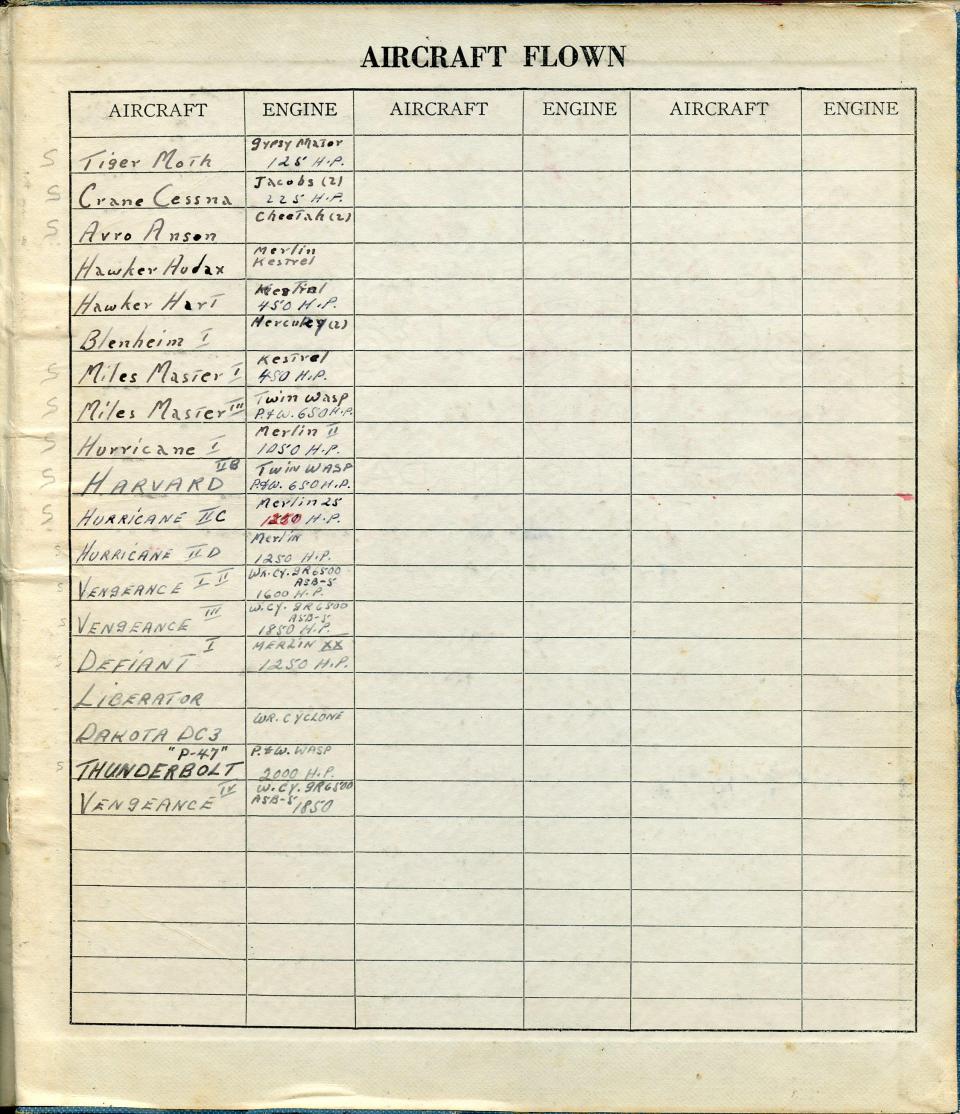 AIRCRAFT FLOWN
AIRCRAFT ENGINE AIRCRAFT ENGINE AIRCRAFT ENGINE
S Tiger Moth gypsy Major 125 H.P.
S Crane Cessna Jacobs (2) 225 H.P.
S Avro Anson Cheetah (2)
Hawker Audax Merlin Kestrel
Hawker Hart Kestrel 450 H.P.
Blenheim I Hercules (2)
S Miles Master I Kestrel 450 H.P.
S Miles Master III Twin Wasp P.&W. 650 H.P.
S Hurricane I Merlin II 1050 H.P.
S HARVARD IIB TWIN WASP P.&W. 650 H.P.
S HURRICANE IIC Merlin 25 H.P.
S HURRICANE IID Merlin 1250 H.P.
S VENGEANCE I II WR. CY. GR6500 ASB-5 1600 H.P.
S VENGEANCE III W. CY. GR6500 ASB-5 1850 H.P.
S DEFIANT I MERLIN XX 1250 H.P.
LIBERATOR
DAKOTA DC3 WR. CYCLONE
S "P-47" THUNDERBOLT P.&W. WASP 2000 H.P.
VENGEANCE IV W. CY. GR6500 ASB-5 1850